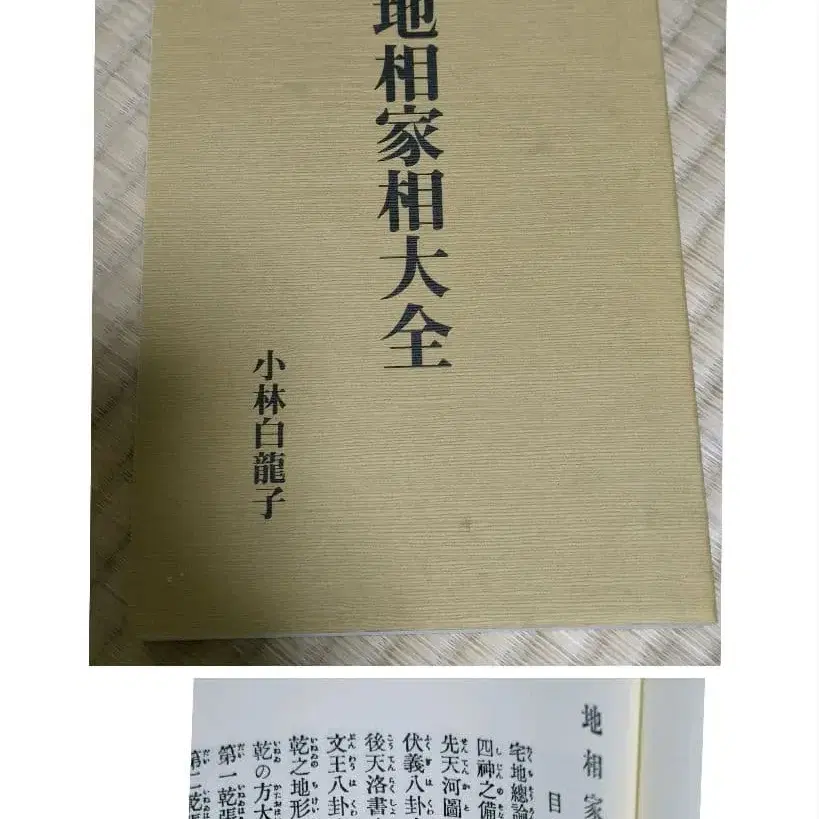 地相家相大全
小林白龍子
地相家
目
宅地總論
四神之備
先天河圖
伏義八卦
後天洛書
文王八卦
乾之地形
乾の方大
第一乾張
第二乾